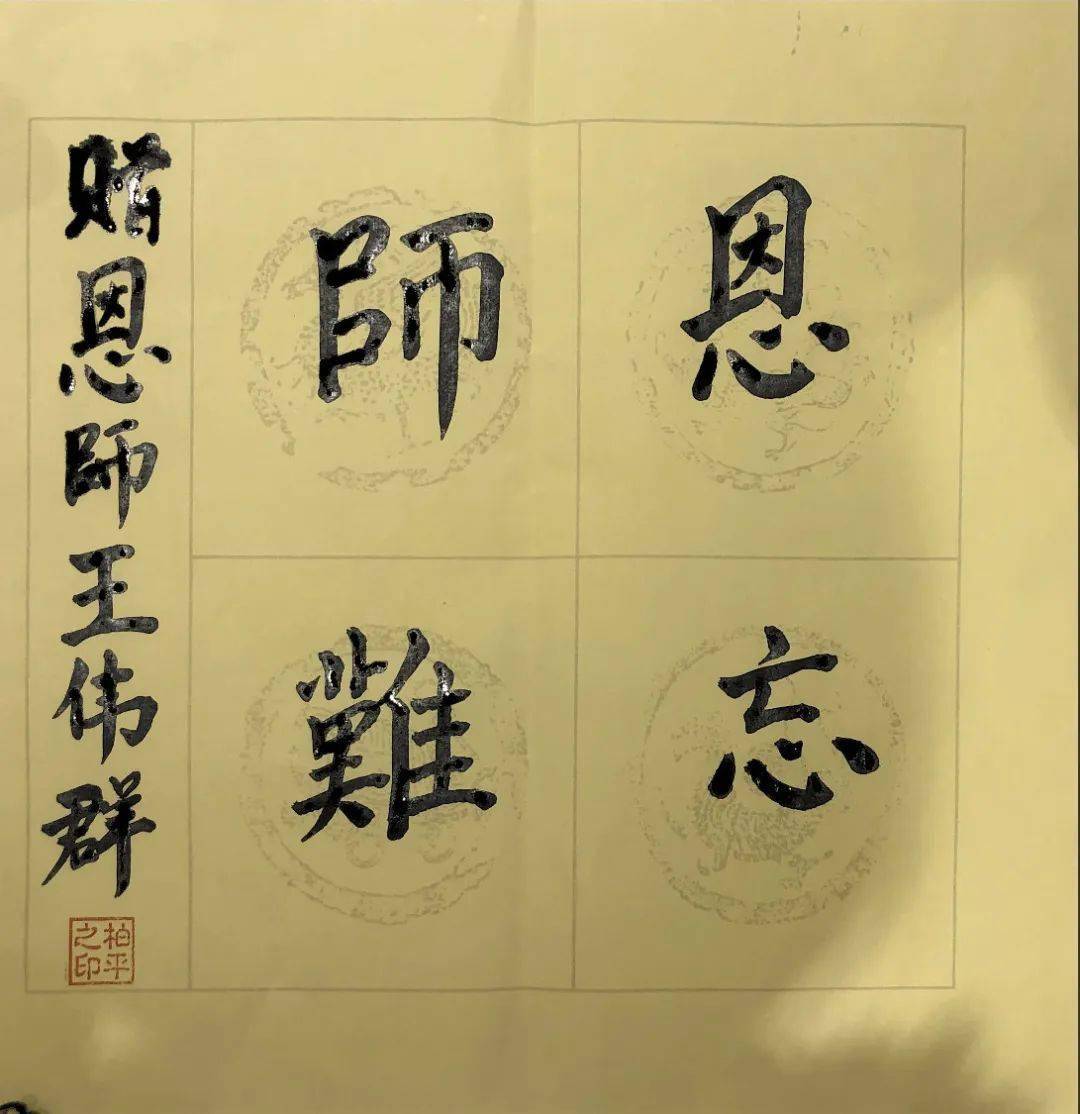 師恩
難忘
恩師王伟群
柏平之印